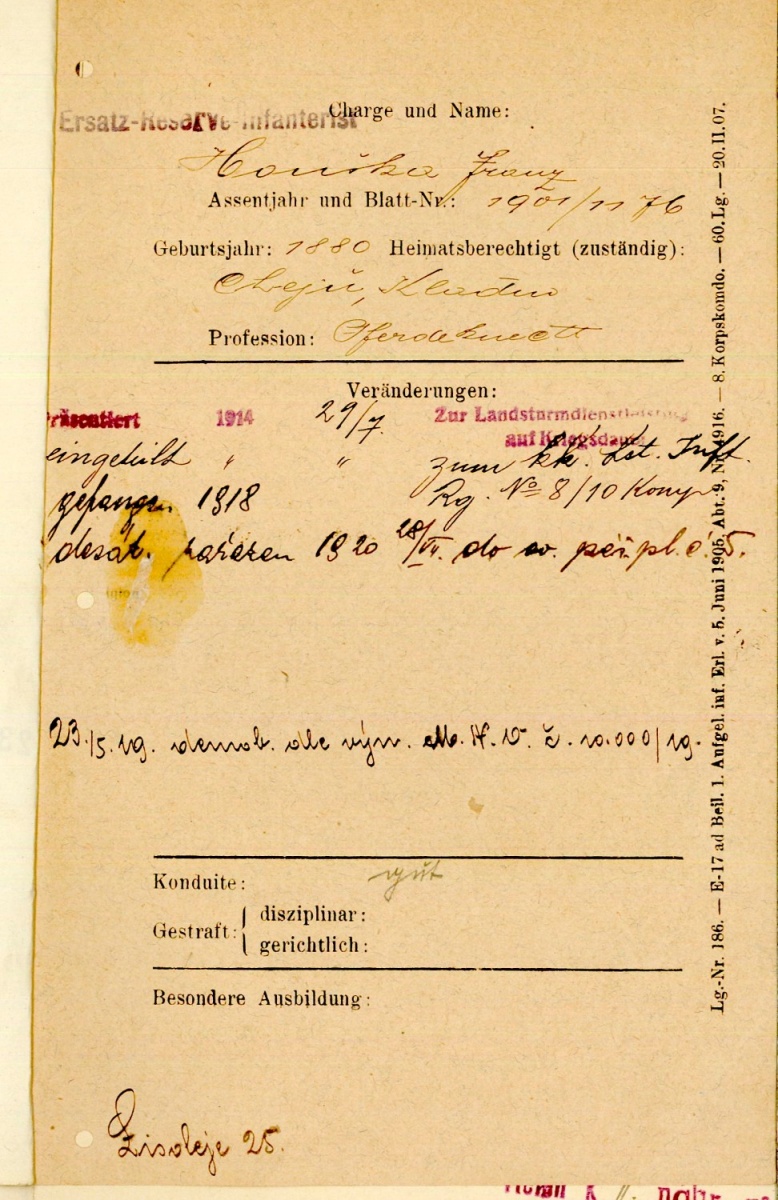 Charge und Name:
Ersatz-Reserve-Infanterist
Honška Franz
Assentjahr und Blatt-Nr.: 1901/1176
Geburtsjahr: 1880 Heimatsberechtigt (zuständig):
Kladno
Profession: Pferdeknecht
Veränderungen:
Präsentiert 1914 29/7. Zur Landsturmdienstleistung
auf Kriegsdauer
eingeteilt " " zum kk. Lst. Inft.
gefangen 1918 Rg. No 8/10 Komp
1920 28/VI. do pěš. pl. č. 5.
23./5. 19. demob. dle výn. M. N. O. č. 10.000/19.
Konduite: gut
Gestraft: disziplinar:
gerichtlich:
Besondere Ausbildung:
25.
Lg.-Nr. 186. — E-17 ad Beil. 1. Aufgel. inf. Erl. v. 5. Juni 1905, Abt. 9, Nr. 1916. — 8. Korpskomdo. — 60. Lg. — 20. II. 07.